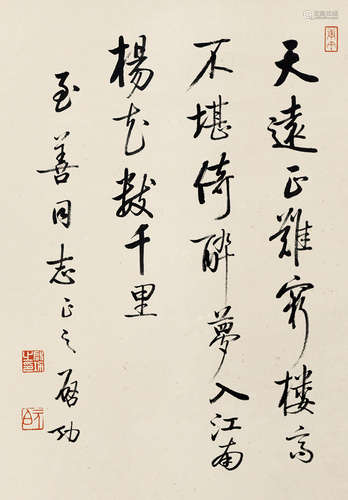 天遠正難窮樓高
不堪倚醉夢入江南
楊花數千里
至善同志正之 啟功